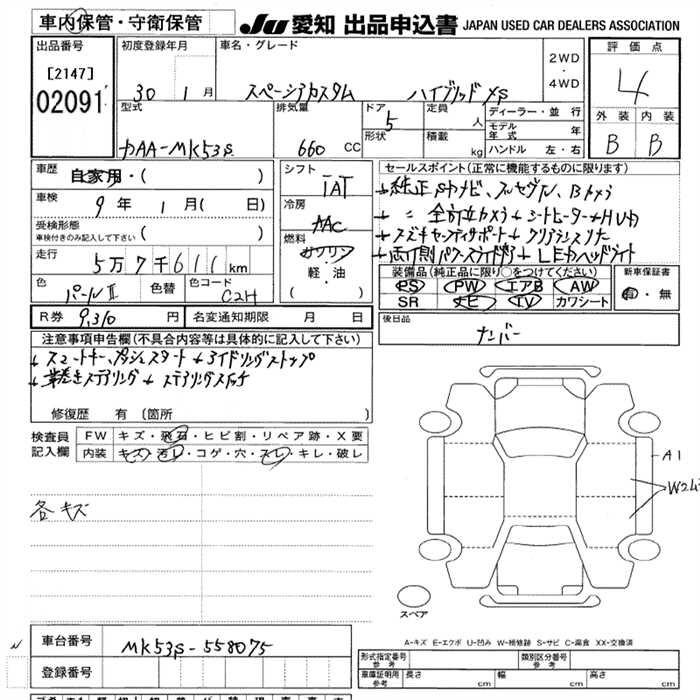 車内保管・守衛保管
JU 愛知 出品申込書 JAPAN USED CAR DEALERS ASSOCIATION
出品番号
[2147]
02091
初度登録年月
30 1 月
車名・グレード
スペーシアカスタム ハイブリッドXS
2WD
・
4WD
評価点
4
外装 内装
B B
型式
DAA-MK53S
排気量
660 CC
ドア
5
形状
定員
人
積載
kg
ディーラー・並行
モデル年式 年
ハンドル 左・右
車歴
自家用・( )
車検
9 年 1 月( 日)
受検形態
車検付きのみ記入して下さい ( )
走行
5万7千611 km
色
パールII
色替
色コード
C2H
シフト
IAT
冷房
AAC
燃料
ガソリン
軽・油
( )
セールスポイント(正常に機能するものに限ります)
純正SDナビ、フルセグTV、Bカメラ
〃 全方位カメラ シートヒーター HUD
スズキセーフティサポート クリアランスソナー
両側パワースライドドア LEDヘッドライト
装備品(純正品に限り○をつけてください)
PS PW エアB AW
SR ナビ TV カワシート
新車保証書
有・無
R券 9,310 円
名変通知期限 月 日
後日品
ナンバー
注意事項申告欄(不具合内容等は具体的に記入して下さい)
スマートキー、プッシュスタート アイドリングストップ
革巻きステアリング ステアリングスイッチ
修復歴 有 (箇所 )
検査員
記入欄
FW キズ・飛石・ヒビ割・リペア跡・X要
内装 キズ・汚レ・コゲ・穴・スレ・キレ・破レ
各キズ
A1
スペア
A-キズ E-エクボ U-凹み W-補修跡 S-サビ C-腐食 XX-交換済
車台番号
MK53S-558075
登録番号
形式指定番号
参考
類別区分番号
参考
車庫証明用
参考
長さ cm 幅 cm 高さ cm